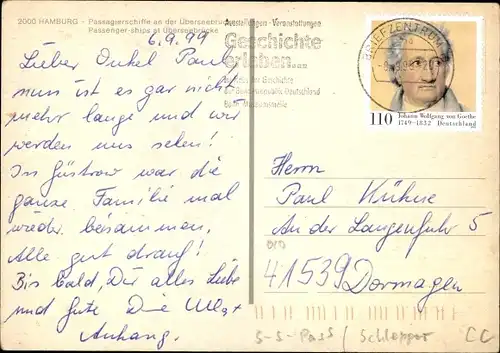 2000 HAMBURG - Passagierschiffe an der Überseebrücke
Passenger-ships at Überseebrücke
6.9.99
Lieber Onkel Paul
nun ist es gar nicht
mehr lange und wir
werden uns sehen!
In Güstrow war die
ganze Familie mal
wieder beisammen.
Alle gut drauf!
Bis bald, Dir alles Liebe
und Gute Die Ulla +
Anhang.
Ausstellungen · Veranstaltungen
Geschichte
erleben...
Haus der Geschichte
der Bundesrepublik Deutschland
Bonn, Museumsmeile
BRIEFZENTRUM
110 Johann Wolfgang von Goethe
1749-1832 Deutschland
Herrn
Paul Kühne
An der Langenfuhr 5
41539 Dormagen
S-S-Pass / Schlepper CC